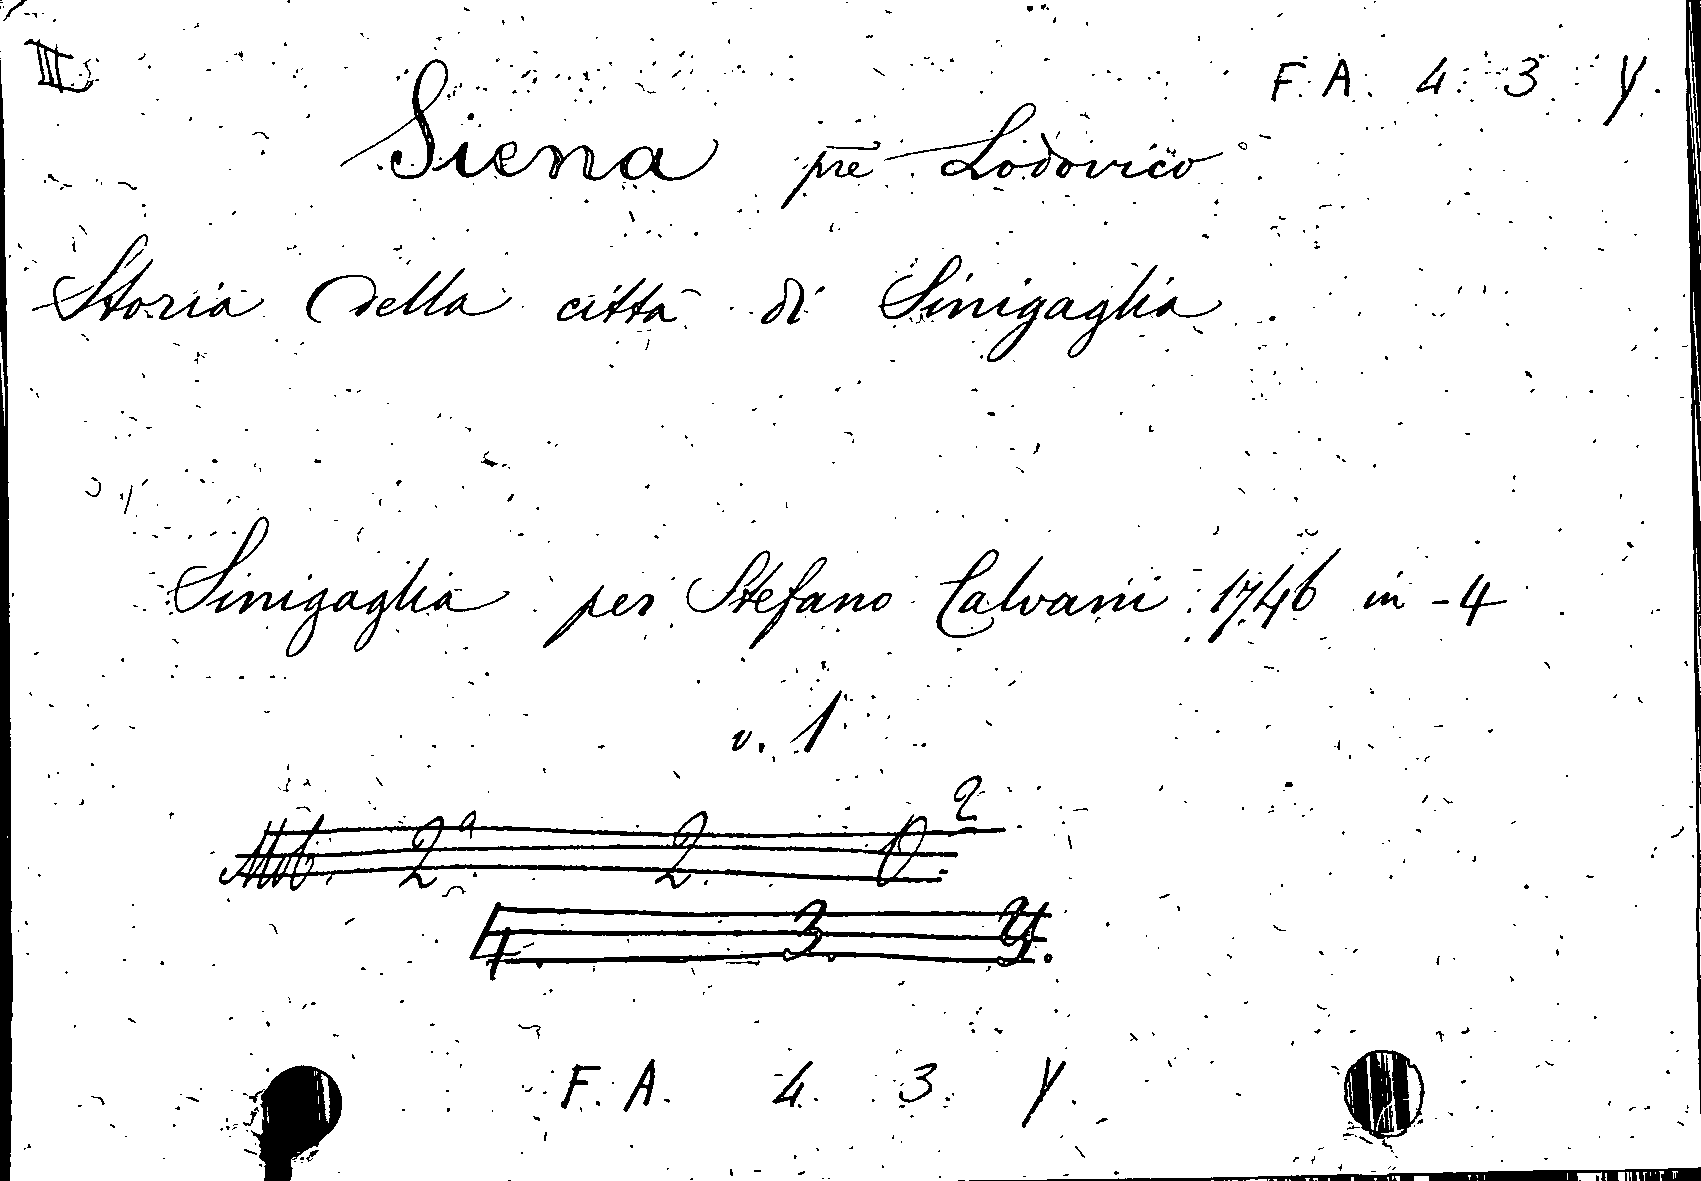 III
F. A. 4. 3. Y.
Siena pre Lodovico
Storia della città di Sinigaglia
Sinigaglia per Stefano Calvani 1746 in-4
v. 1
Mob. 2ª 2. O.
4. 3. Y.
F. A. 4. 3. Y.